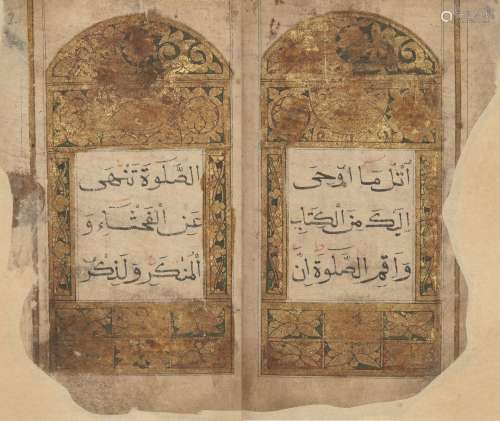 اُتْلُ مَا اُوحِىَ
اِلَيْكَ مِنَ الْكِتَابِ
وَاَقِمِ الصَّلٰوةَ اِنَّ
الصَّلٰوةَ تَنْهٰى
عَنِ الْفَحْشَاءِ وَ
الْمُنْكَرِ وَلَذِكْرُ